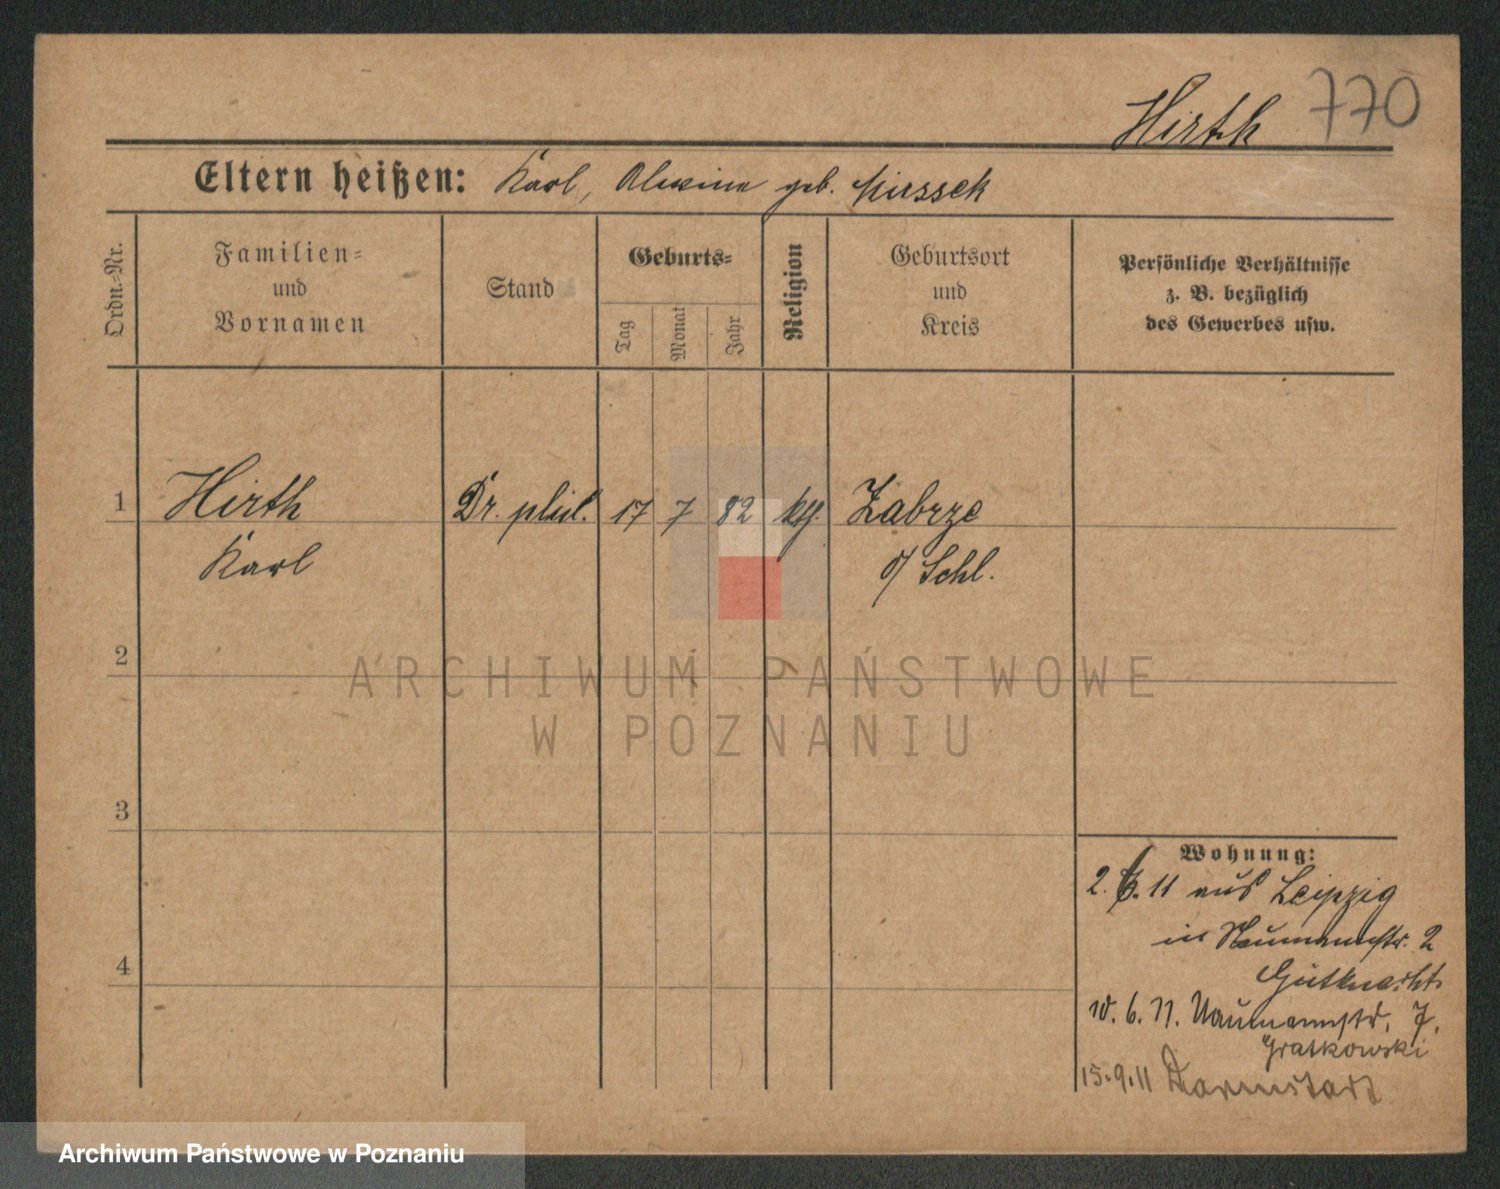 Hirth 770
Eltern heißen: Karl, geb.
Ordn.-Nr.
Familien- und Vornamen
Stand
Geburts-
Tag
Monat
Jahr
Religion
Geburtsort und Kreis
Persönliche Verhältnisse
z. B. bezüglich
des Gewerbes usw.
1 Hirth Dr. phil. 17 7 82 kth. Zabrze
Karl O/Schl.
2
ARCHIWUM PAŃSTWOWE
W POZNANIU
3
Wohnung:
2. 6. 11 aus Leipzig
in Naumannstr. 2
Gutknecht
4
10. 6. 11. Naumannstr. 7.
Gratkowski
15.9.11 Darmstadt
Archiwum Państwowe w Poznaniu